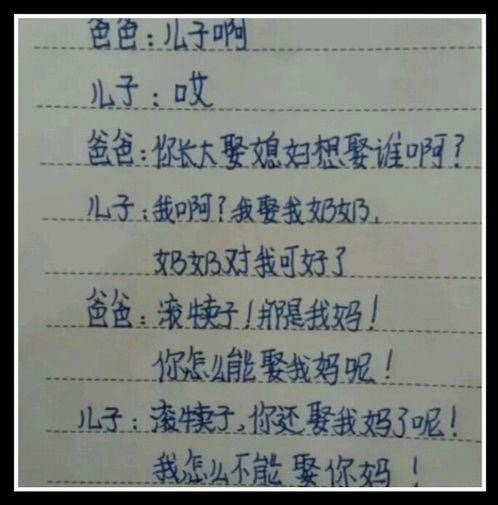 爸爸：儿子啊
儿子：哎
爸爸：你长大娶媳妇想娶谁啊？
儿子：我啊？我娶我奶奶，
奶奶对我可好了
爸爸：滚犊子！那是我妈！
你怎么能娶我妈呢！
儿子：滚犊子，你还娶我妈了呢！
我怎么不能娶你妈！